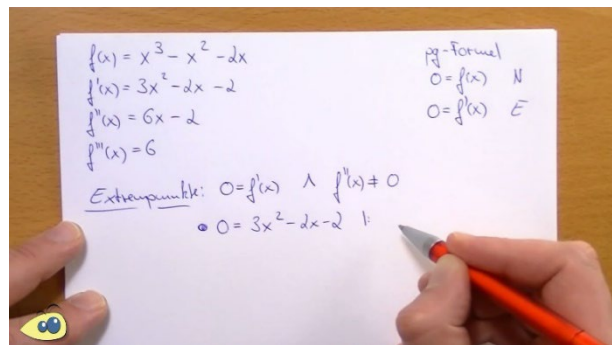 f(x) = x³ - x² - 2x
f'(x) = 3x² - 2x - 2
f''(x) = 6x - 2
f'''(x) = 6
pq-Formel
0 = f(x) N
0 = f'(x) E
Extrempunkte: 0 = f'(x) ∧ f''(x) ≠ 0
• 0 = 3x² - 2x - 2 |: